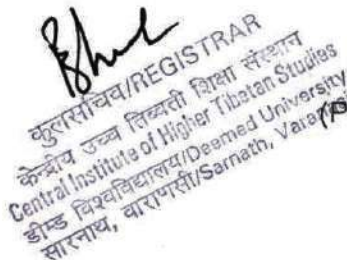 कुलसचिव/REGISTRAR
केन्द्रीय उच्च तिब्बती शिक्षा संस्थान
Central Institute of Higher Tibetan Studies
डीम्ड विश्वविद्यालय/Deemed University
सारनाथ, वाराणसी/Sarnath,